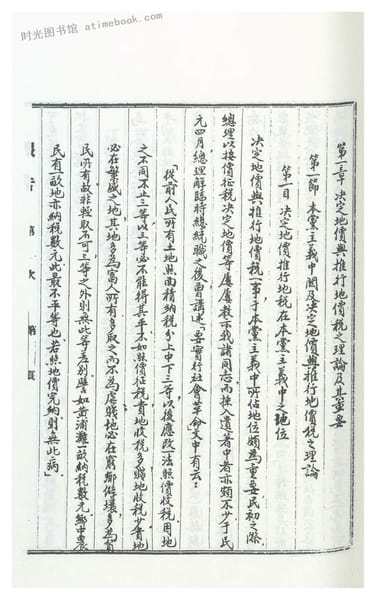 时光图书馆 atimebook.com
第一章 決定地價與推行地價税之理論及其重要
第一節 本黨主義中關及決定地價與推行地價税之理論
第一目 決定地價推行地税在本黨主義中之地位
決定地價與推行地價税一事于本黨主義中所佔地位頗為重要民初之際
總理以按價征税決定地價等屢屢教示我諸同志而採入遺著中者亦頗不少于民
元四月總理解除臨時總統職之後曾講述「要實行社會革命文中有云：
「從前人民所有土地照面積納税分上中下三等以後應改一法照價收税因地
之不同不止三等或以三等必不能得其平不如照價征税貴地收税多賤地收税少貴地
必在繁盛之地其地多為富人所有多取之而不為虐賤地必在窮鄉僻壤多為貧
民所有故非輕取不可三等之外則無此等差別譬如黄浦灘一畝納税數元鄉中農
民有一畝地亦納税數元此最不平等也若照地價完納則無此病」
第 次 第 頁